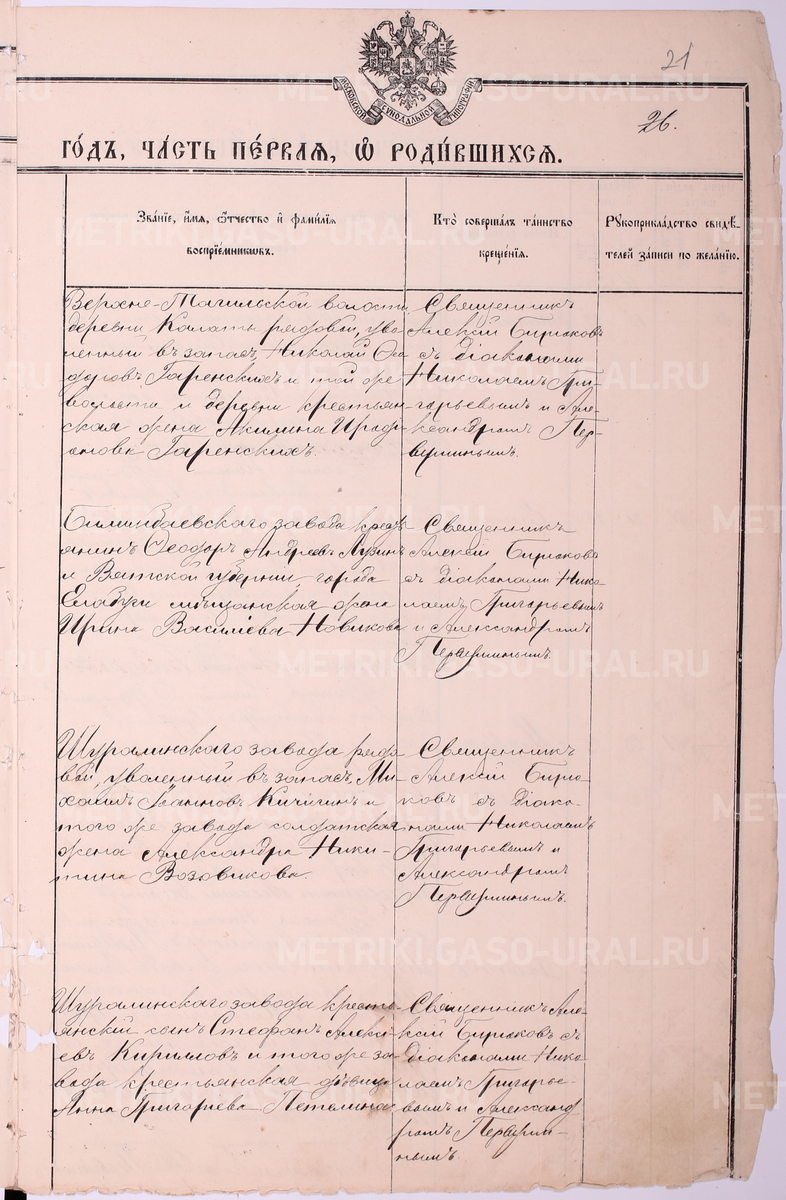 21
26.
МОСКОВСКОЙ СѴНОДАЛЬНОЙ ТИПОГРАФІИ
ГО́ДЪ, ЧА́СТЬ ПЕ́РВАЯ, Ѡ҆ РОДИ́ВШИХСЯ.
Зва́нїе, и҆́мя, Ѻ҆́тчество и҆ фами́лїя
воспрїе́мникѡвъ.
Кто̀ соверша́лъ та́инство
креще́нїя.
Рꙋкоприкла́дство свидѣ́-
телей за́писи по жела́нїю.
Верхне-Тагильской волости
деревни Калаты рядовой, уво
ленный въ запас, Николай Ѳео
доровъ Гаренскихъ и той же
волости и деревни крестьян
ская жена Акилина
Гаренскихъ.
Священникъ
Алексій Бирюковъ
съ діаконами
Николаемъ Гри-
горьевымъ и Але-
ксандромъ Пер-
вушинымъ.
Билимбаевскаго завода кресть
янинъ Ѳеодоръ Андреевъ Лузинъ
и Вятской губерніи города
Елабуги мѣщанская жена
Ирина Василіева Новикова
Священникъ
Алексій Бирюковъ
съ діаконами Нико
лаемъ Григорьевымъ
и Александромъ
Первушинымъ.
Шуралинскаго завода рядо
вой, уволенный въ запасъ, Ми-
хаилъ Іоанновъ Кичигинъ и
того же завода солдатская
жена Александра Ники-
тина Возовикова.
Священникъ
Алексій Бирю-
ковъ съ діако-
нами Николаемъ
Григорьевымъ и
Александромъ
Первушинымъ.
Шуралинскаго завода кресть-
янскій сынъ Стефанъ Алексі-
евъ Кирилловъ и того же за-
вода крестьянская дѣвица
Анна Григоріева Петелина
Священникъ Але-
ксій Бирюковъ съ
діаконами Нико
лаемъ Григорье-
вымъ и Александ
ромъ Первуши-
нымъ.
METRIKI.GASO-URAL.RU